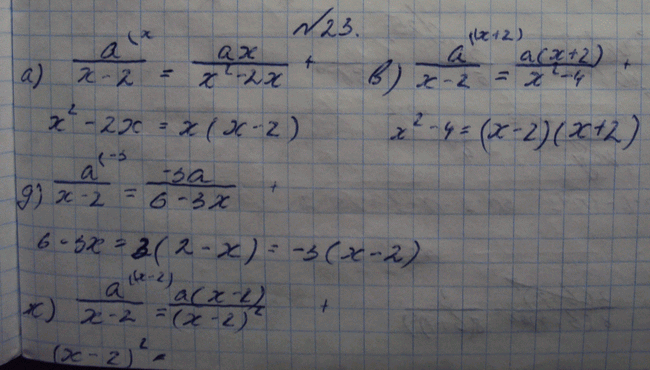 №23.
а) a^(x / x-2 = ax / x²-2x + в) a^(x+2) / x-2 = a(x+2) / x²-4 +
x² - 2x = x(x-2) x² - 4 = (x-2)(x+2)
д) a^(-3 / x-2 = -3a / 6-3x +
6-3x = 3(2-x) = -3(x-2)
ж) a^(x-2) / x-2 = a(x-2) / (x-2)² +
(x-2)² =